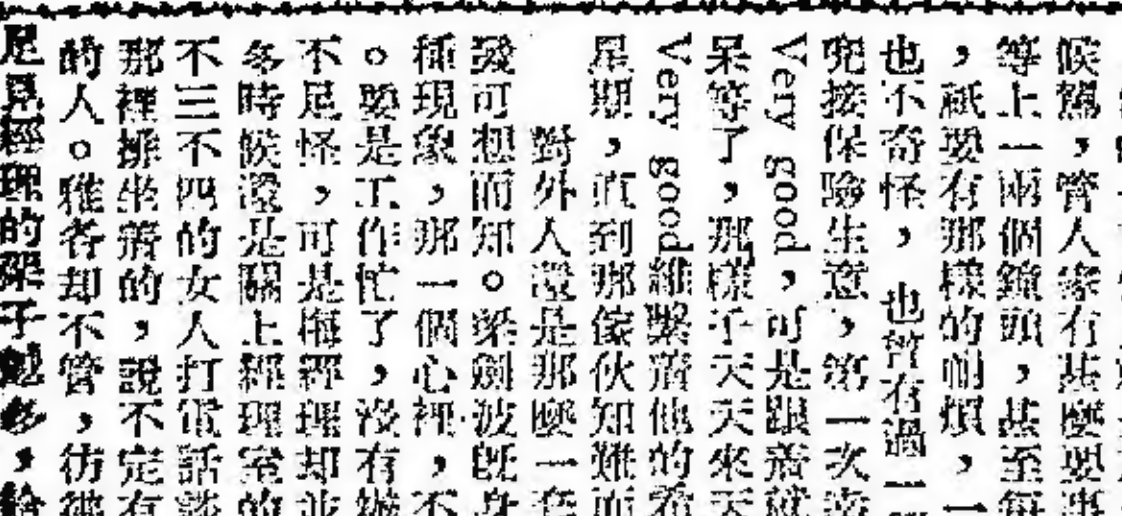 候駕，管人家有甚麼要事
等上一兩個鐘頭，甚至每
，祇要有那樣的耐煩，一
也不奇怪，也曾有過一
兜接保險生意，第一次
Very good，可是跟着就
呆等了，那樣子天天來天
Very good維繫着他的希
星期，直到那傢伙知難而
對外人還是那麼一套
愛可想而知。梁劍波既身
種現象，那一個心裡，不
。要是工作忙了，沒有辦
不足怪，可是梅經理却並
多時候還是關上經理室的
不三不四的女人打電話談
那裡排坐着的，說不定有
的人。雅各却不管，彷彿
足見經理的架子夠多，給